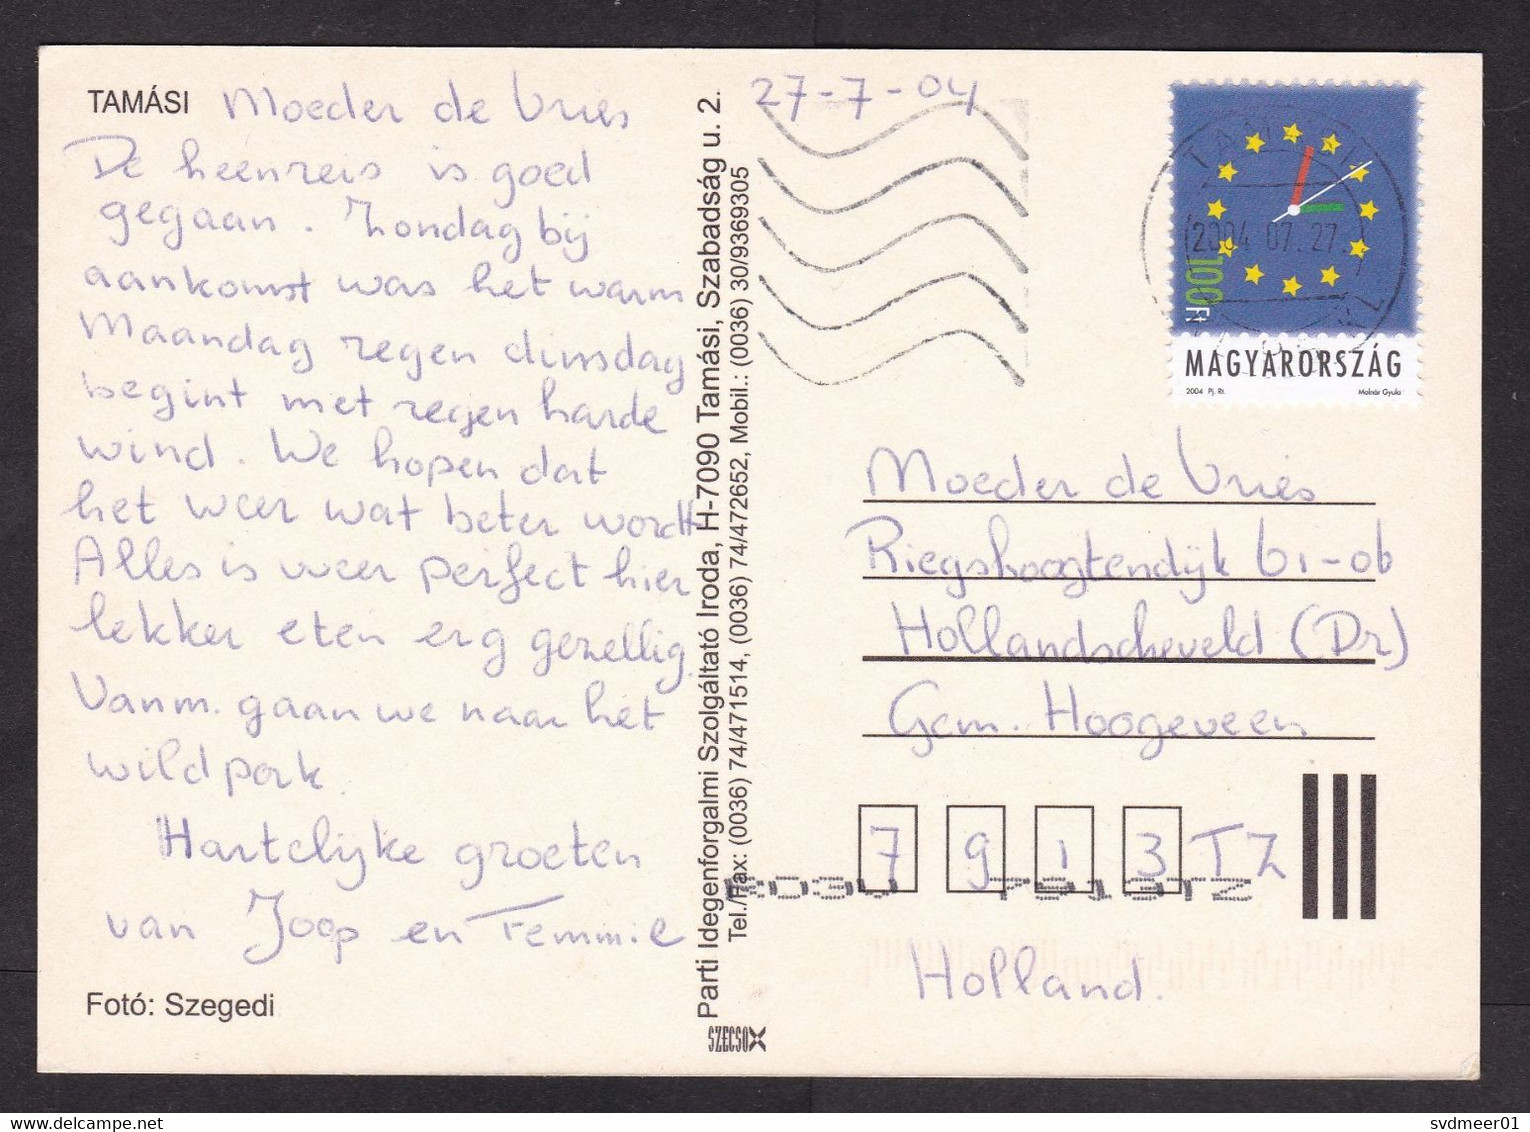 TAMÁSI Moeder de Vries
De heenreis is goed
gegaan. Zondag bij
aankomst was het warm
Maandag regen dinsdag
begint met regen harde
wind. We hopen dat
het weer wat beter wordt
Alles is weer perfect hier
lekker eten erg gezellig.
Vanm. gaan we naar het
wildpark.
Hartelijke groeten
van Joop en Femmie
Fotó: Szegedi
Parti Idegenforgalmi Szolgáltató Iroda, H-7090 Tamási, Szabadság u. 2.
Tel./Fax: (0036) 74/471514, (0036) 74/472652, Mobil.: (0036) 30/9369305
SZECSOX
27-7-04
2004 07.27.
100 Ft
MAGYARORSZÁG
2004 Pj. Rt. Molnár Gyula
Moeder de Vries
Riegshoogtendijk 61-06
Hollandscheveld (Dr)
Gem. Hoogeveen
7 9 1 3 TZ
7913TZ
Holland.
svdmeer01